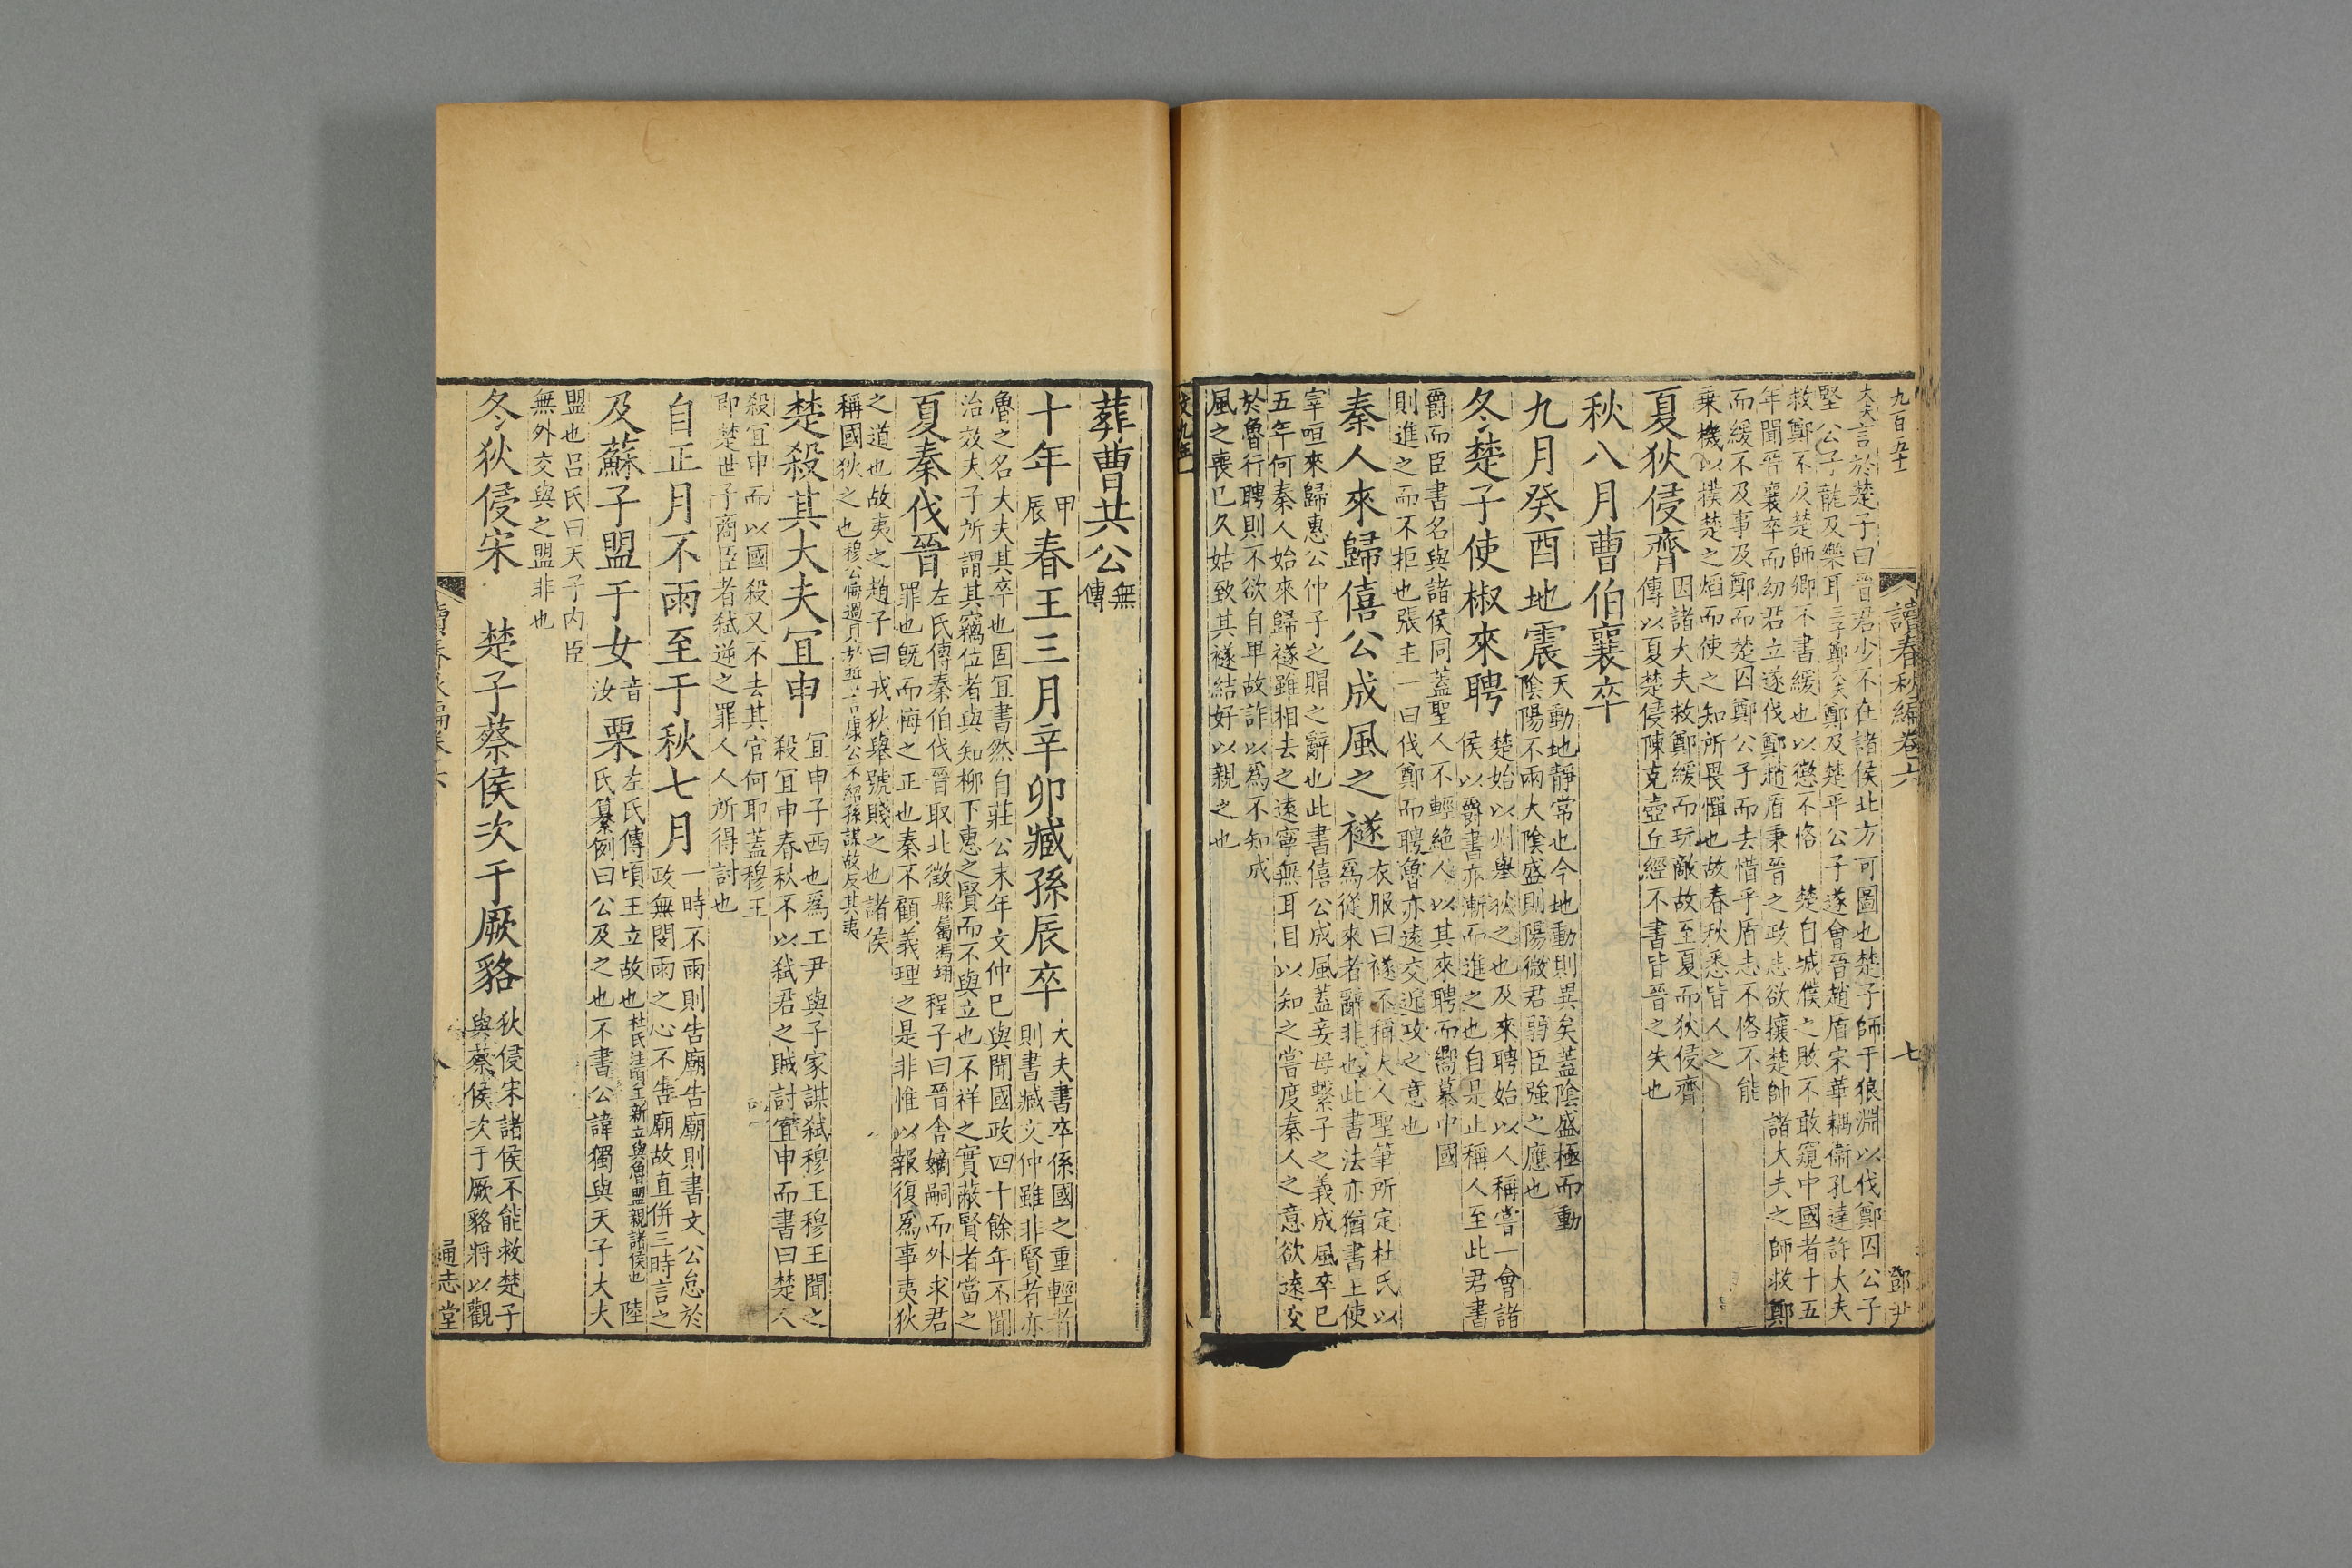 九百五十
讀春秋編卷六
七
鄧尹
大夫言於楚子曰晉君少不在諸侯北方可圖也楚子師于狼淵以伐鄭囚公子
堅公子龍及樂耳三子鄭大夫鄭及楚平公子遂會晉趙盾宋華耦衞孔達許大夫
救鄭不及楚師卿不書緩也以懲不恪 楚自城濮之敗不敢窺中國者十五
年聞晉襄卒而幼君立遂伐鄭趙盾秉晉之政志欲攘楚帥諸大夫之師救鄭
而緩不及事及鄭而楚囚鄭公子而去惜乎盾志不恪不能
乗機以撲楚之熖而使之知所畏憚也故春秋悉皆人之
夏狄侵齊
傳以夏楚侵陳克壺丘經不書皆晉之失也
因諸大夫救鄭緩而玩敵故至夏而狄侵齊
秋八月曹伯襄卒
九月癸酉地震
天動地靜常也今地動則異矣蓋陰盛極而動
陰陽不兩大陰盛則陽微君弱臣強之應也
冬楚子使椒來聘
楚始以州舉狄之也及來聘始以人稱嘗一會諸
侯以爵書亦漸而進之也自是止稱人至此君書
爵而臣書名與諸侯同蓋聖人不輕絶人以其來聘而嚮慕中國
則進之而不拒也張主一曰伐鄭而聘魯亦遠交近攻之意也
秦人來歸僖公成風之襚
衣服曰襚不稱夫人聖筆所定杜氏以
爲從來者辭非也此書法亦猶書王使
宰咺來歸惠公仲子之賵之辭也此書僖公成風蓋妾母繫子之義成風卒已
五年何秦人始來歸襚雖相去之遠寧無耳目以知之嘗度秦人之意欲遠交
於魯行聘則不欲自卑故詐以爲不知成
風之喪已久姑致其襚結好以親之也
文九年
葬曹共公
無
傳
十年
甲
辰
春王三月辛卯臧孫辰卒
大夫書卒係國之重輕者
則書臧文仲雖非賢者亦
魯之名大夫其卒也固宜書然自莊公末年文仲已與聞國政四十餘年不聞
治效夫子所謂其竊位者與知柳下惠之賢而不與立也不祥之實蔽賢者當之
夏秦伐晉
左氏傳秦伯伐晉取北徵縣屬馮翊 程子曰晉舍嫡嗣而外求君
罪也旣而悔之正也秦不顧義理之是非惟以報復爲事夷狄
之道也故夷之趙子曰戎狄舉號賤之也諸侯
稱國狄之也
楚殺其大夫宜申
宜申子西也爲工尹與子家謀弑穆王穆王聞之
殺宜申春秋不以弑君之賊討宜申而書曰楚人
殺宜申而以國殺又不去其官何耶蓋穆王
即楚世子商臣者弑逆之罪人人所得討也
自正月不雨至于秋七月
一時不雨則告廟告廟則書文公怠於
政無閔雨之心不告廟故直併三時言之
及蘇子盟于女
音
汝
栗
左氏傳頃王立故也杜氏注頃王新立與魯盟親諸侯也 陸
氏纂例曰公及之也不書公諱獨與天子大夫
盟也呂氏曰天子内臣
無外交與之盟非也
冬狄侵宋 楚子蔡侯次于厥貉
狄侵宋諸侯不能救楚子
與蔡侯次于厥貉將以觀
讀春秋編卷六
八
通志堂